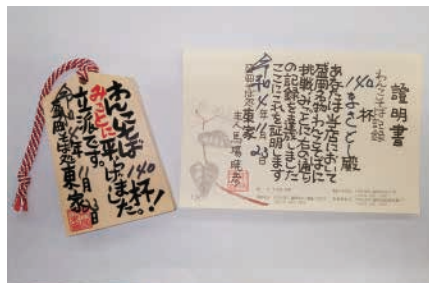 わんこそば140杯!
みごとに平らげました。
立派です。
令和4年11月23日
東家
證明書
わんこそば記録
140杯
まさとし殿
あなたは当店において
盛岡名物わんこそばに
挑戦みごとに右の通り
の記録を達成しました
ここにこれを証明します
令和4年11月23日
東家
馬場暁彦